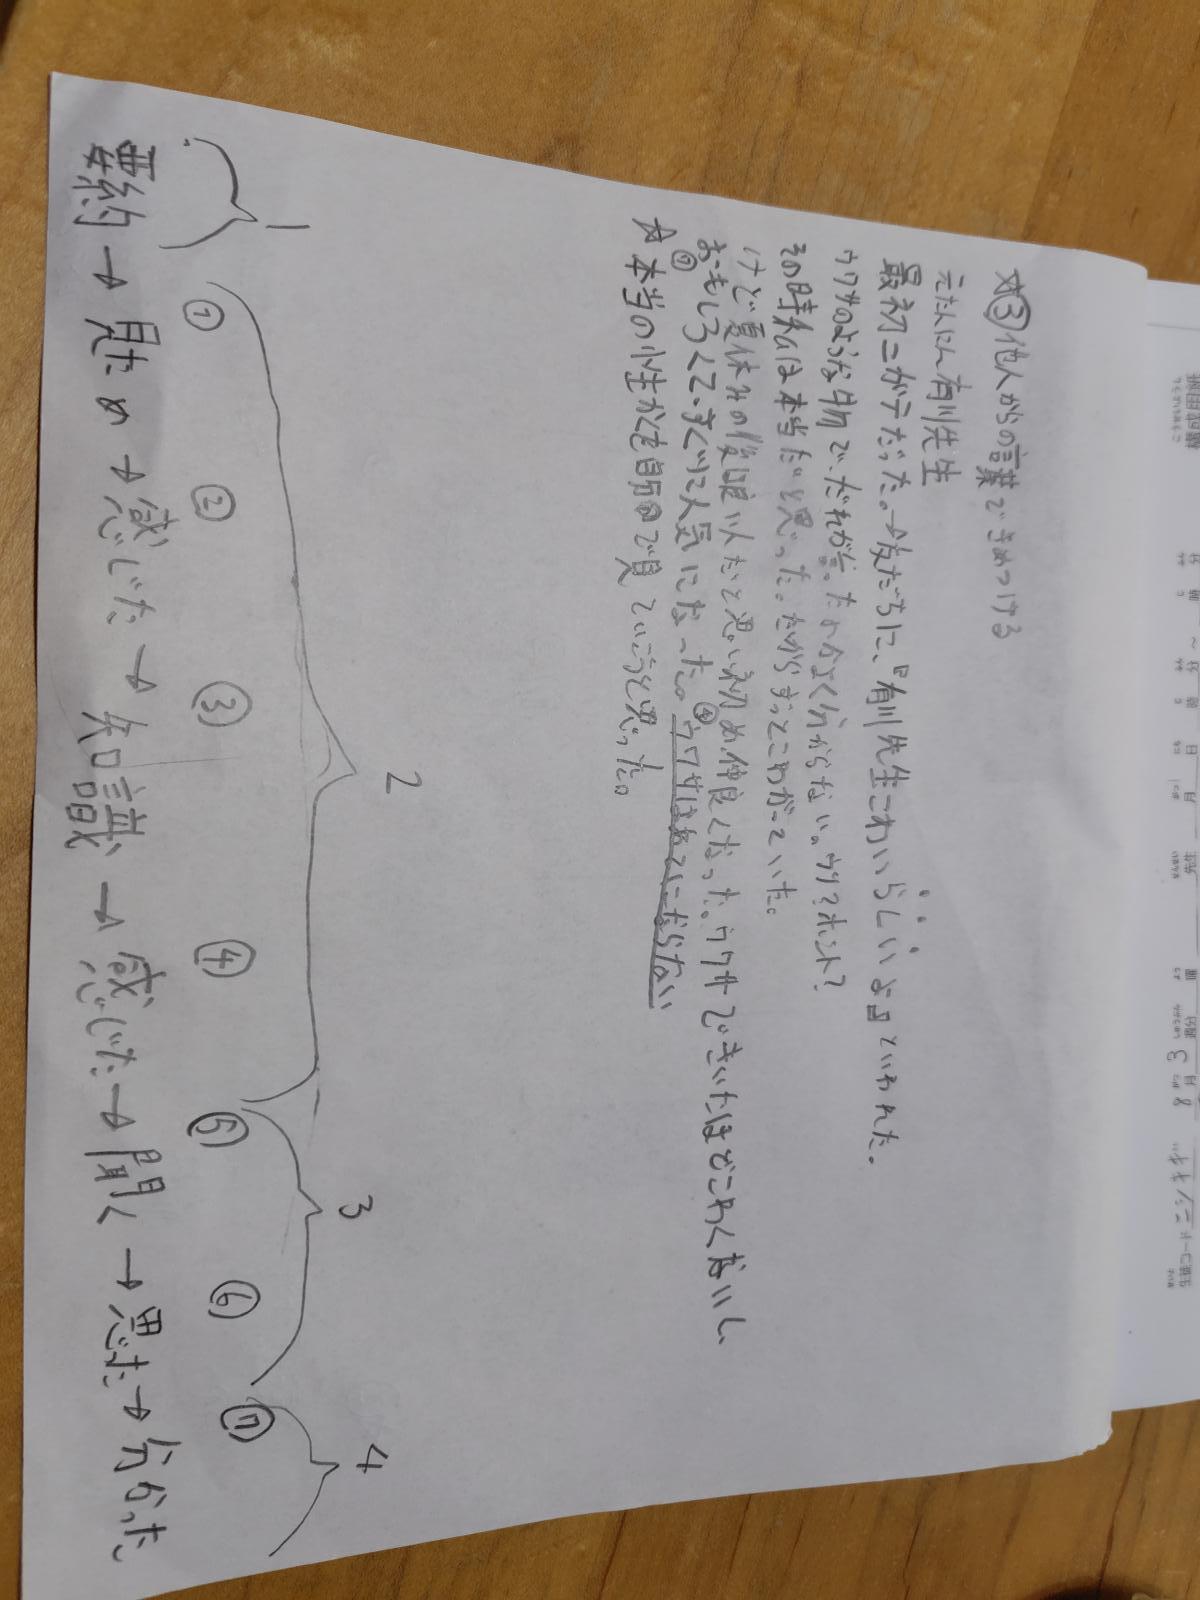 ③他人からの言葉できめつける
元たんにん有川先生
最初ニガテだった。→友だちに、『有川先生こわいらしいよ』といわれた。
ウワサのような物で、だれが言ったかよく分からない。ウソ?ホント?
その時私は本当だと思った。だからずっとこわがっていた。
けど夏休みの後頃いたと思い初め、仲良くなった。ウワサできいたほどこわくないし、
おもしろくて、すぐに人気になった。④ウワサはあてにならない
☆⑦本当の小生かくを自分の目で見ていこうと思った。
1
2
3
4
① ② ③ ④ ⑤ ⑥ ⑦
要約→見ため→感じた→知識→感じた→聞く→思た→分かった
構成用紙
分
時
分
時
日
月
先生
週
3週分
8月
生徒コード ニシキギ